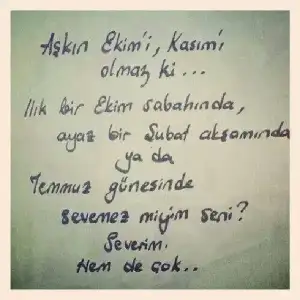 Aşkın Ekim'i, Kasım'ı
olmaz ki...
Ilık bir Ekim sabahında,
ayaz bir Şubat akşamında
ya da
Temmuz güneşinde
sevemez miyim seni?
Severim.
Hem de çok..